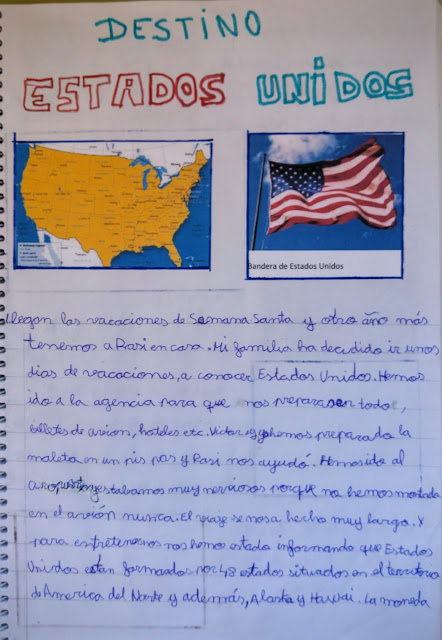 DESTINO
ESTADOS UNIDOS
Bandera de Estados Unidos
llegan las vacaciones de Semana Santa y otro año más
tenemos a Rasi en casa. Mi familia ha decidido ir unos
dias de vacaciones, a conocer Estados Unidos. Hemos
ido a la agencia para que nos preparasen todo,
billetes de avion, hoteles etc. Victor y yo hemos preparado la
maleta en un pis pas y Rasi nos ayudó. Hemos ido al
aropuerto y estabamos muy nerviosos porque no hemos montado
en el avión nunca. El viaje se nos a hecho muy largo. Y
para entretenernos nos hemo estado informando que Estados
Unidos estan formados por 48 estados situados en el territorio
de America del Norte y además, Alaska y Hawai. La moneda